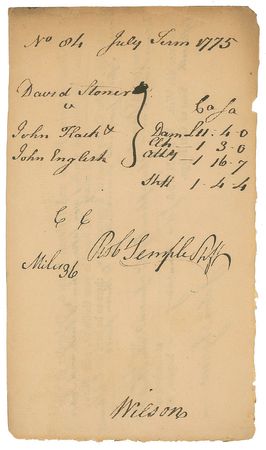 No 84 July Term 1775
David Stoner
v
John Flack &
John English
Ca Sa
Dam £11 - 4 - 0
Clk - 1 3 - 0
Atty - 1 16 - 7
Shff 1 - 4 - 4
C C
Robt Semple Shff
Miles 36
Wilson